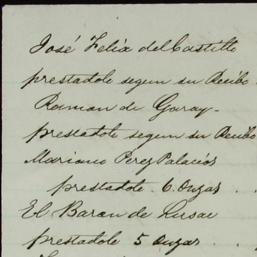 José Felix del Castillo
prestadole segun su Recibo
Raman de Garay.
prestadole segun su Recibo
Mariano Perez Palacios
prestadole 6. Onzas . .
El Baran de Lusac
prestadole 5 Onzas . . .